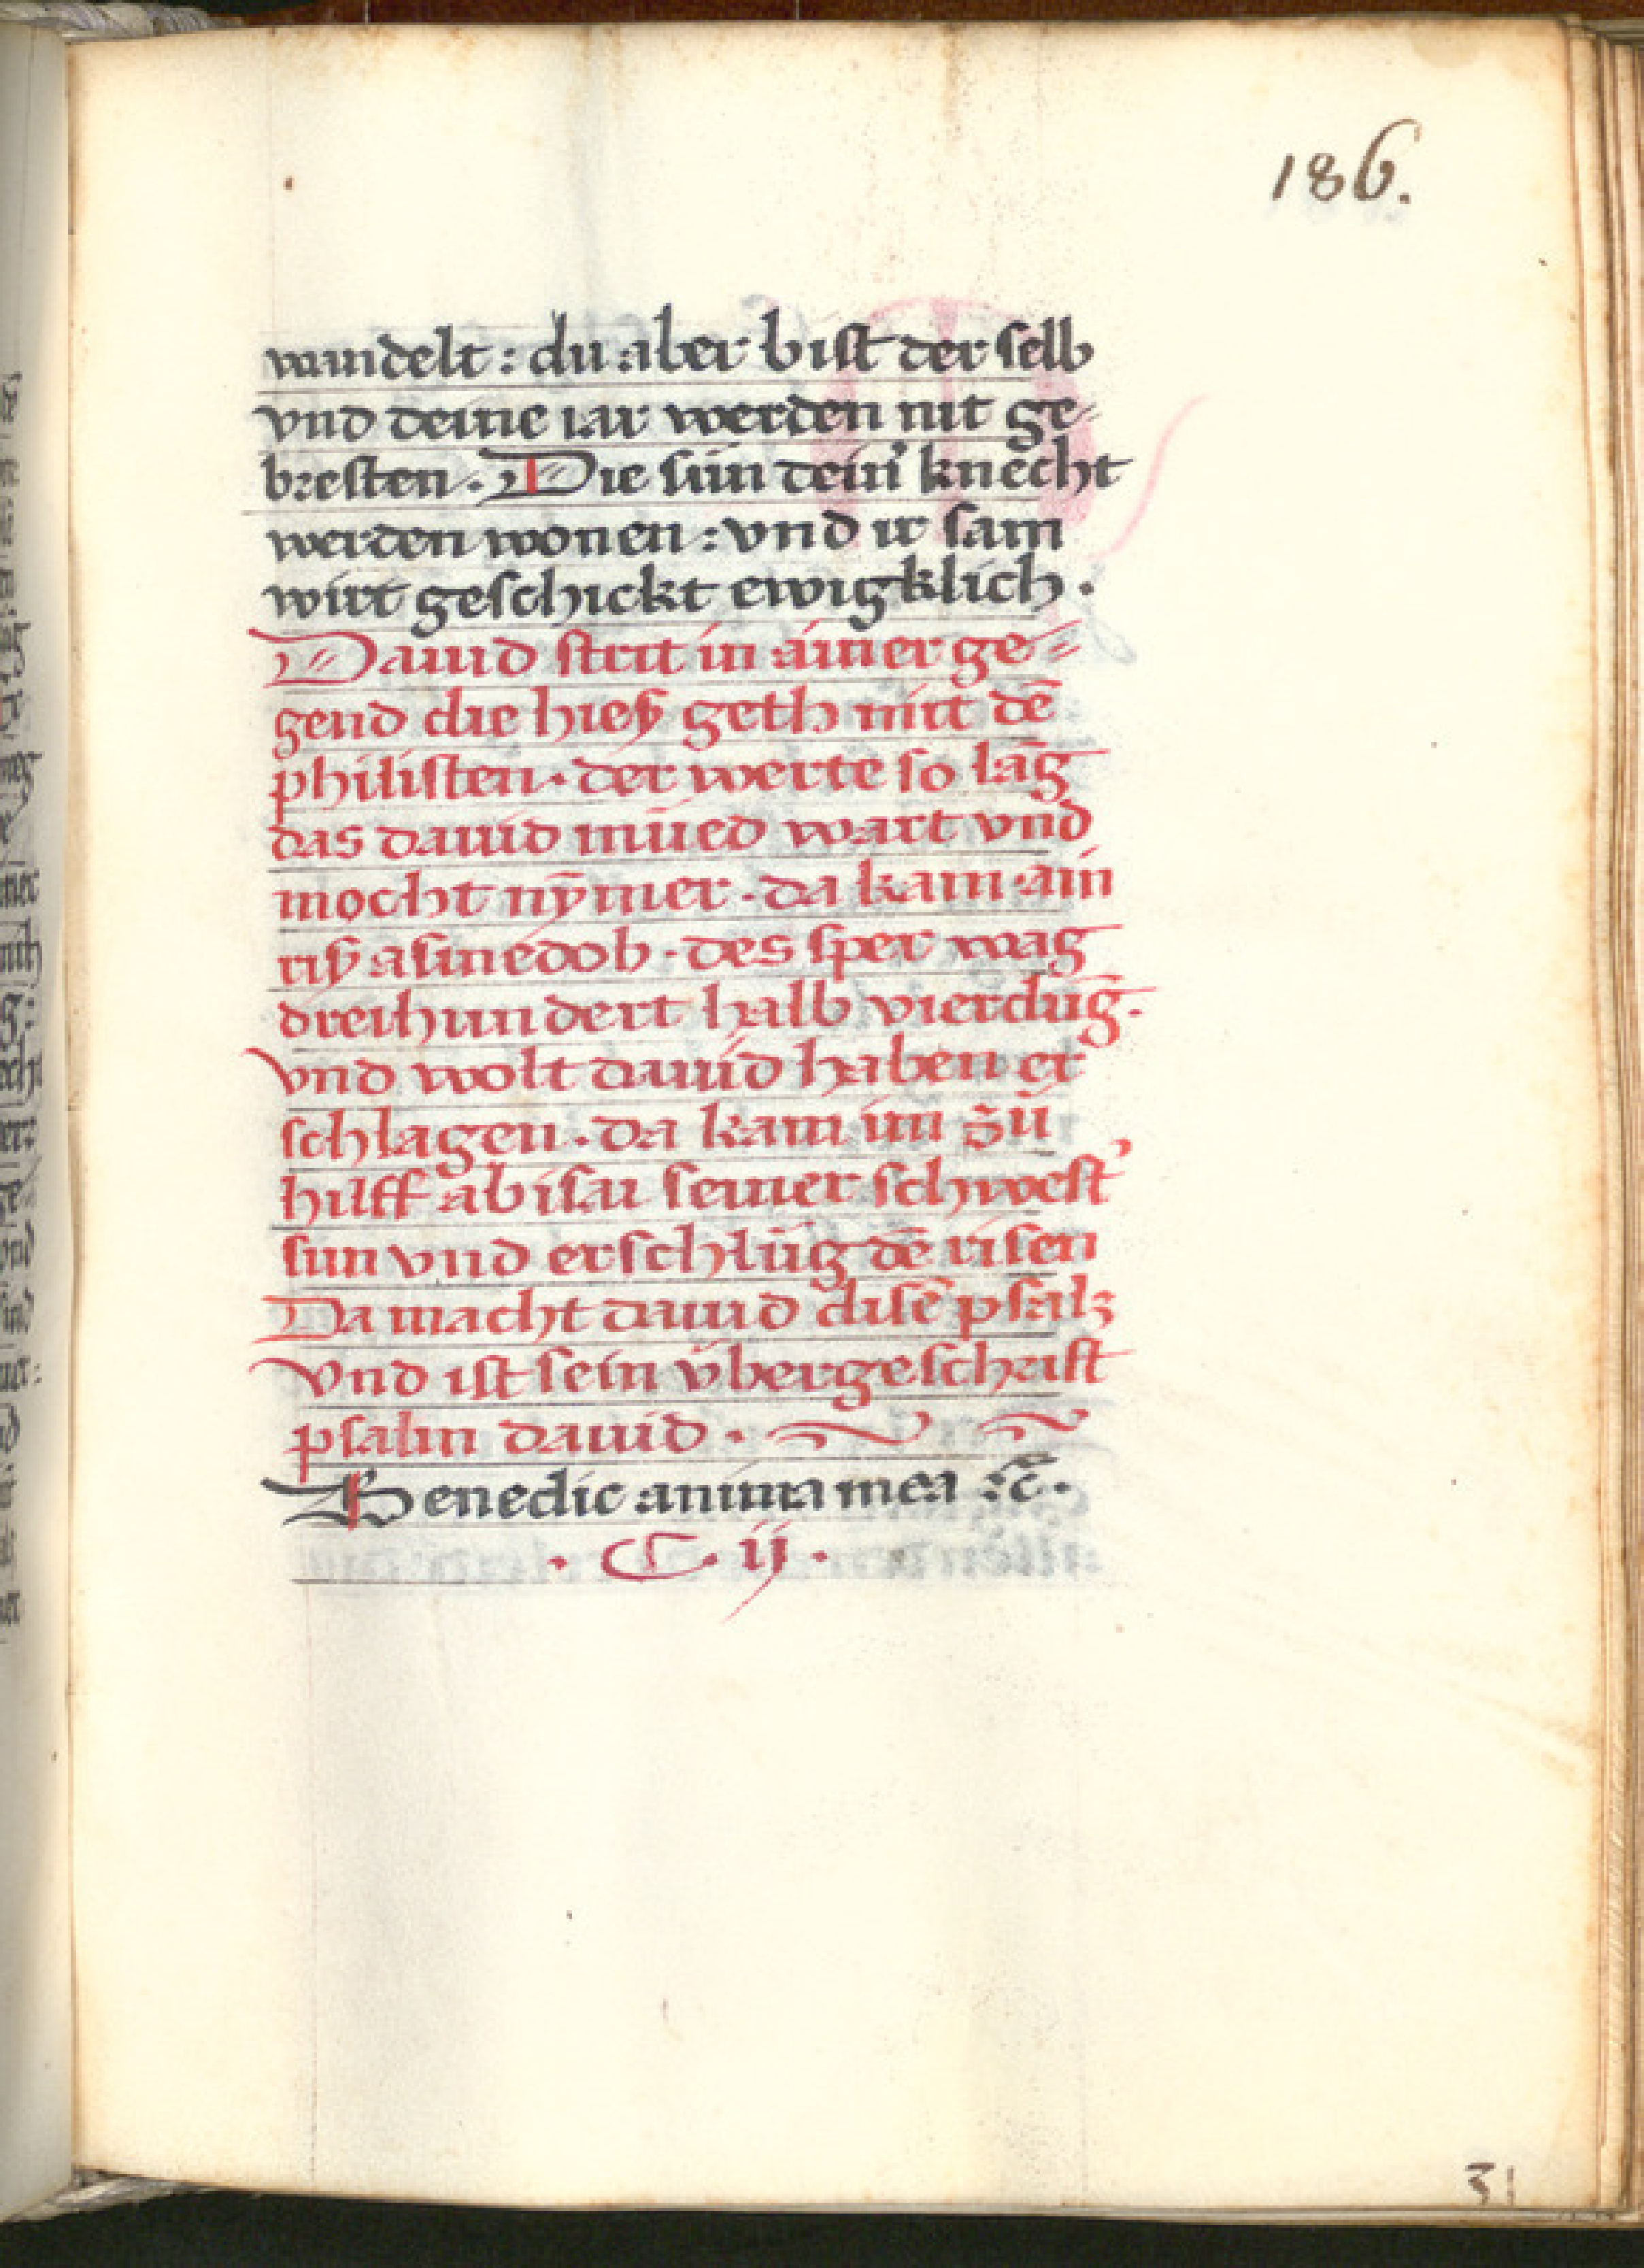 186.
wandelt : du aber bist der selb
vnd deine iar werden nit ge⸗
bresten . Die sün dein᷑ knecht
werden wonen : vnd ir sam
wirt geschickt ewigklich .
Dauid streit in ainer ge⸗
gend die hieß geth mit dē
philisten . der werte so lāg
das dauid mūed wart vnd
mocht nȳmer . da kam ain
riß asmedob . des sper wag
dreihundert halb vierdūg .
vnd wolt dauid haben er
schlagen . da kam im zū
hilff abisai seiner schwest᷑
sun vnd erschlūg dē risen
Da macht dauid disē psalm
Vnd ist sein v̈bergeschrift
psalm dauid .
Benedic anima mea ꝛc̄ .
. C . ij .
31